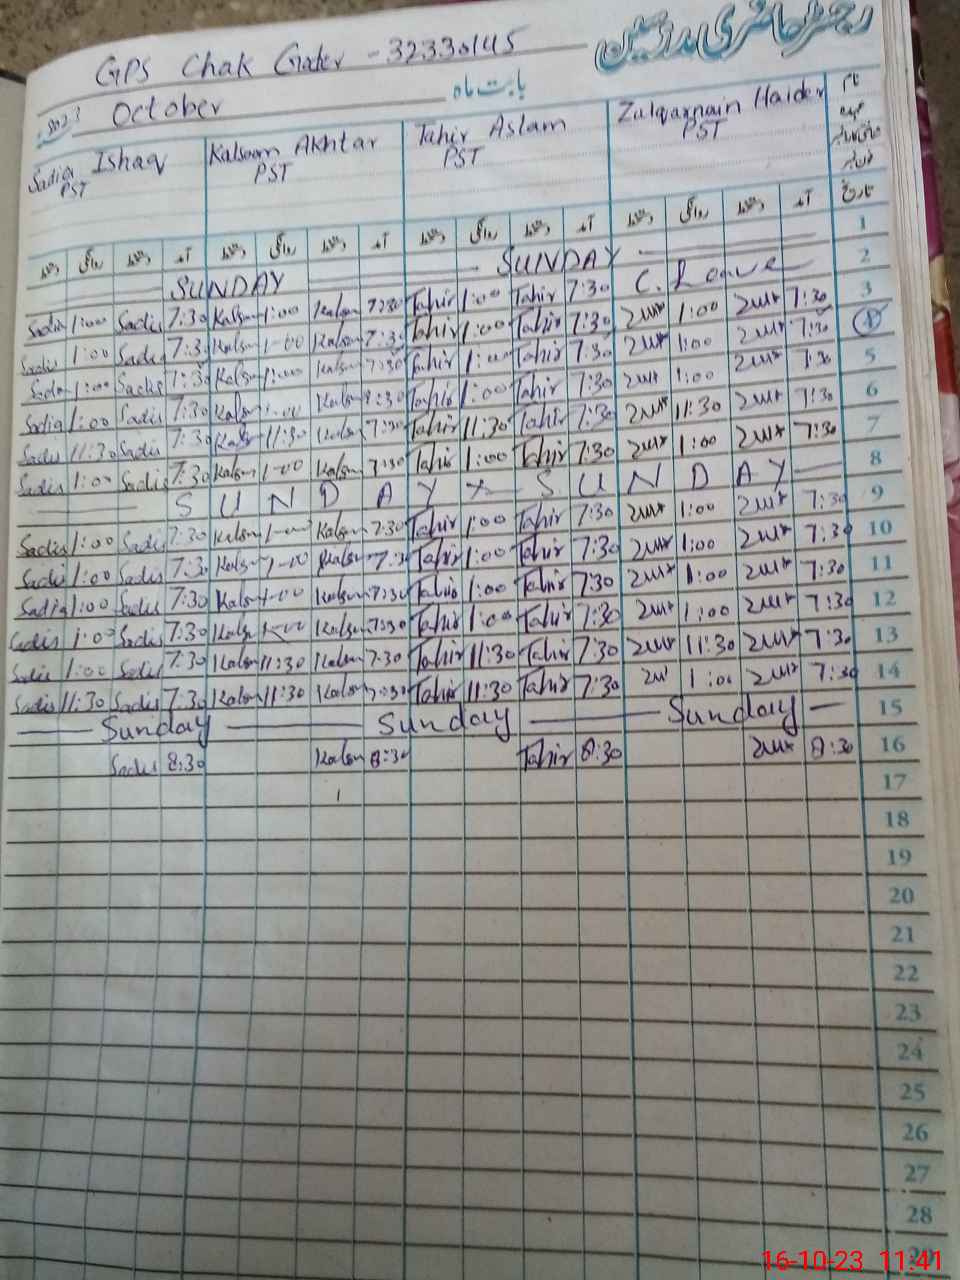 GPS Chak Gader - 32330145 رجسٹر حاضری مدرسین
2023 October بابت ماہ
Sadia Ishaq Kalsoom Akhtar Tahir Aslam Zulqarnain Haider نام
PST PST PST PST عہدہ
تاریخ
دستخط روانگی دستخط آمد دستخط روانگی دستخط آمد دستخط روانگی دستخط آمد دستخط روانگی دستخط آمد
SUNDAY SUNDAY 1
C. Leave 2
Sadia 1:00 Sadia 7:30 Kalsom 1:00 Kalsom 7:30 Tahir 1:00 Tahir 7:30 1:00 7:30 3
Sadia 1:00 Sadia 7:30 Kalsom 1-00 Kalsom 7:30 Tahir 1:00 Tahir 7:30 1:00 7:30 4
Sadia 1:00 Sadia 7:30 Kalsom 1:00 Kalsom 7:30 Tahir 1:00 Tahir 7:30 1:00 7:30 5
Sadia 1:00 Sadia 7:30 Kalsom 1:00 Kalsom 7:30 Tahir 1:00 Tahir 7:30 11:30 7:30 6
Sadia 11:30 Sadia 7:30 Kalsom 11:30 Kalsom 7:30 Tahir 11:30 Tahir 7:30 1:00 7:30 7
Sadia 1:00 Sadia 7:30 Kalsom 1-00 Kalsom 7:30 Tahir 1:00 Tahir 7:30
S U N D A Y x S U N D A Y 8
Sadia 1:00 Sadia 7:30 Kalsom 1-00 Kalsom 7:30 Tahir 1:00 Tahir 7:30 1:00 7:30 9
Sadia 1:00 Sadia 7:30 Kalsom 1-00 Kalsom 7:30 Tahir 1:00 Tahir 7:30 1:00 7:30 10
Sadia 1:00 Sadia 7:30 Kalsom 1-00 Kalsom 7:30 Tahir 1:00 Tahir 7:30 1:00 7:30 11
Sadia 1:00 Sadia 7:30 Kalsom 1-00 Kalsom 7:30 Tahir 1:00 Tahir 7:30 1:00 7:30 12
Sadia 1:00 Sadia 7:30 Kalsom 11:30 Kalsom 7:30 Tahir 11:30 Tahir 7:30 11:30 7:30 13
Sadia 11:30 Sadia 7:30 Kalsom 11:30 Kalsom 7:30 Tahir 11:30 Tahir 7:30 1:00 7:30 14
Sunday Sunday Sunday 15
Sadia 8:30 Kalsom 8:30 Tahir 8:30 8:30 16
17
18
19
20
21
22
23
24
25
26
27
28
29
16-10-23 11:41